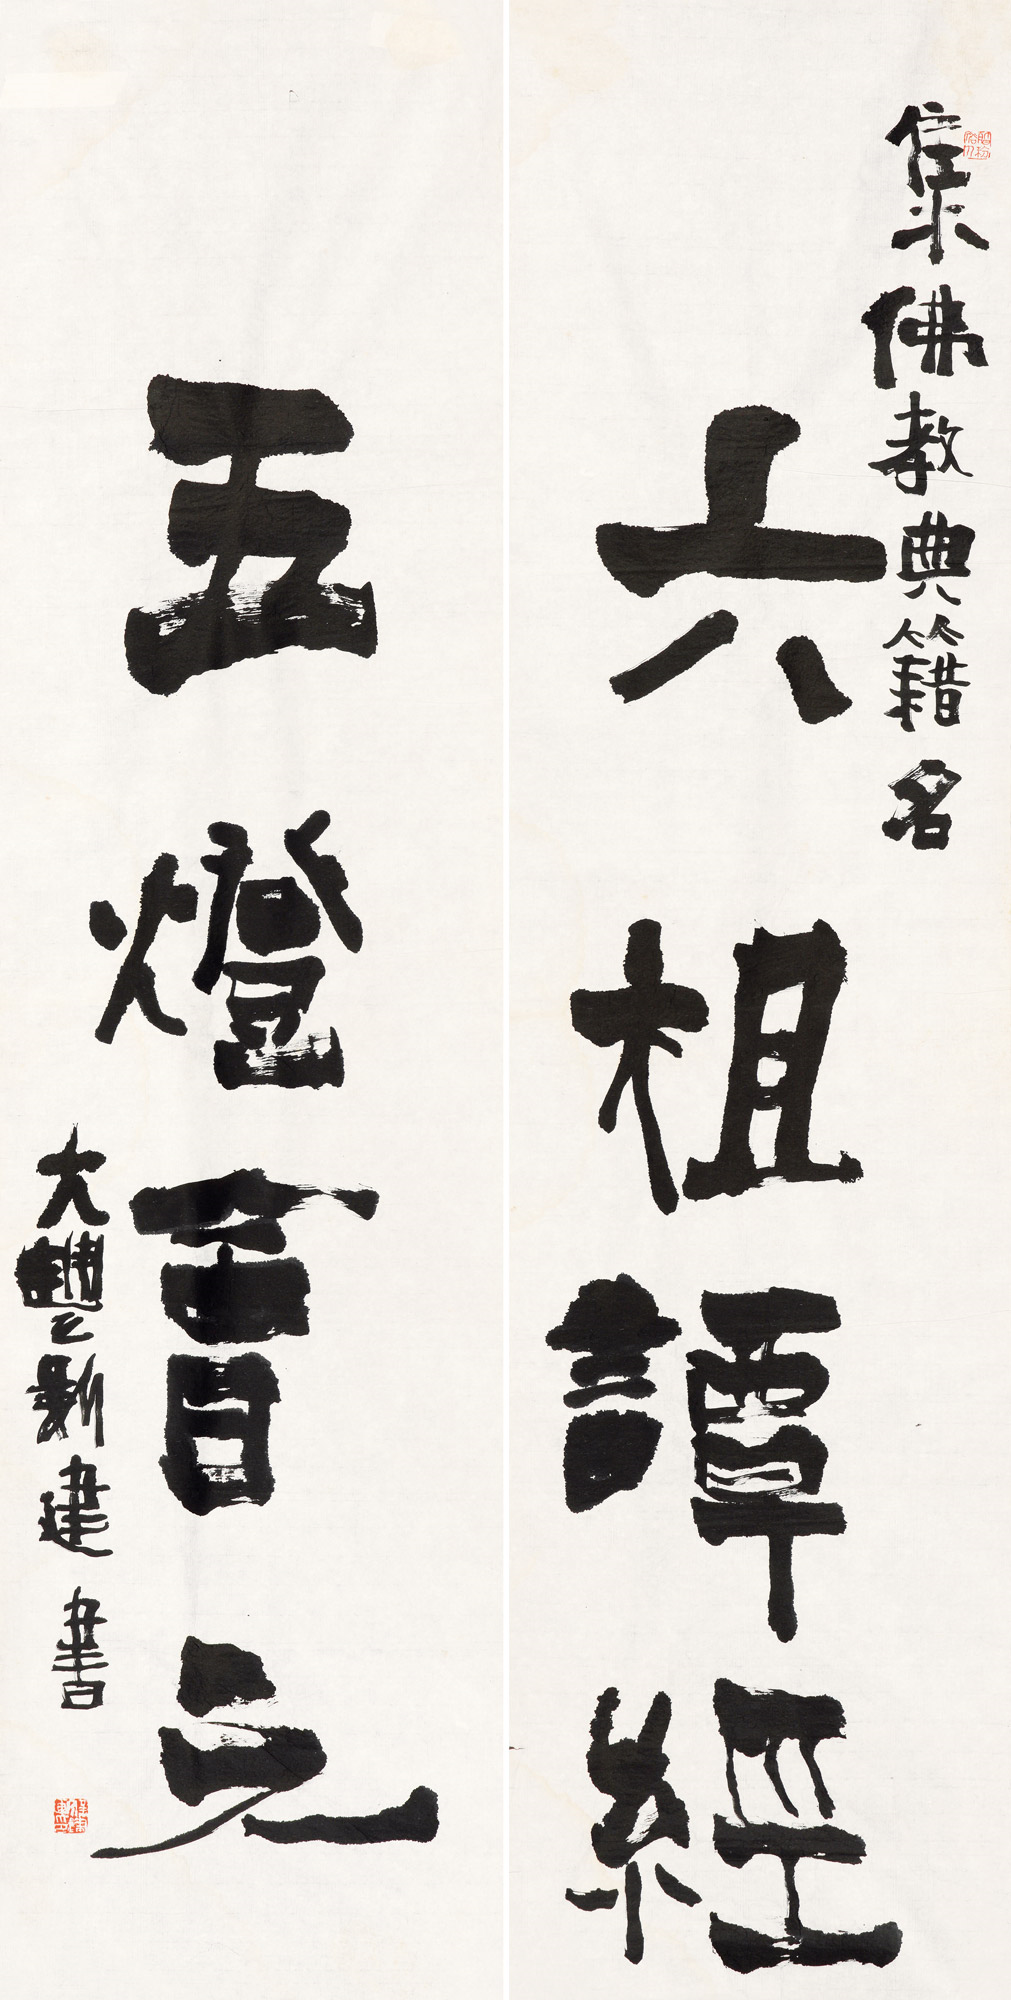 集佛教典籍名
六祖譚經
五燈會元
大豐之新建書